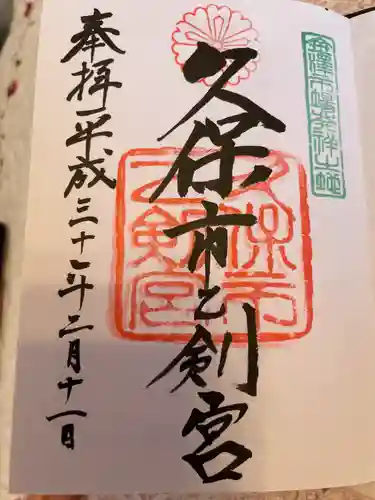 金澤市場発祥之地
久保市乙剣宮
久保市
乙剣宮
奉拝 平成三十一年二月十一日